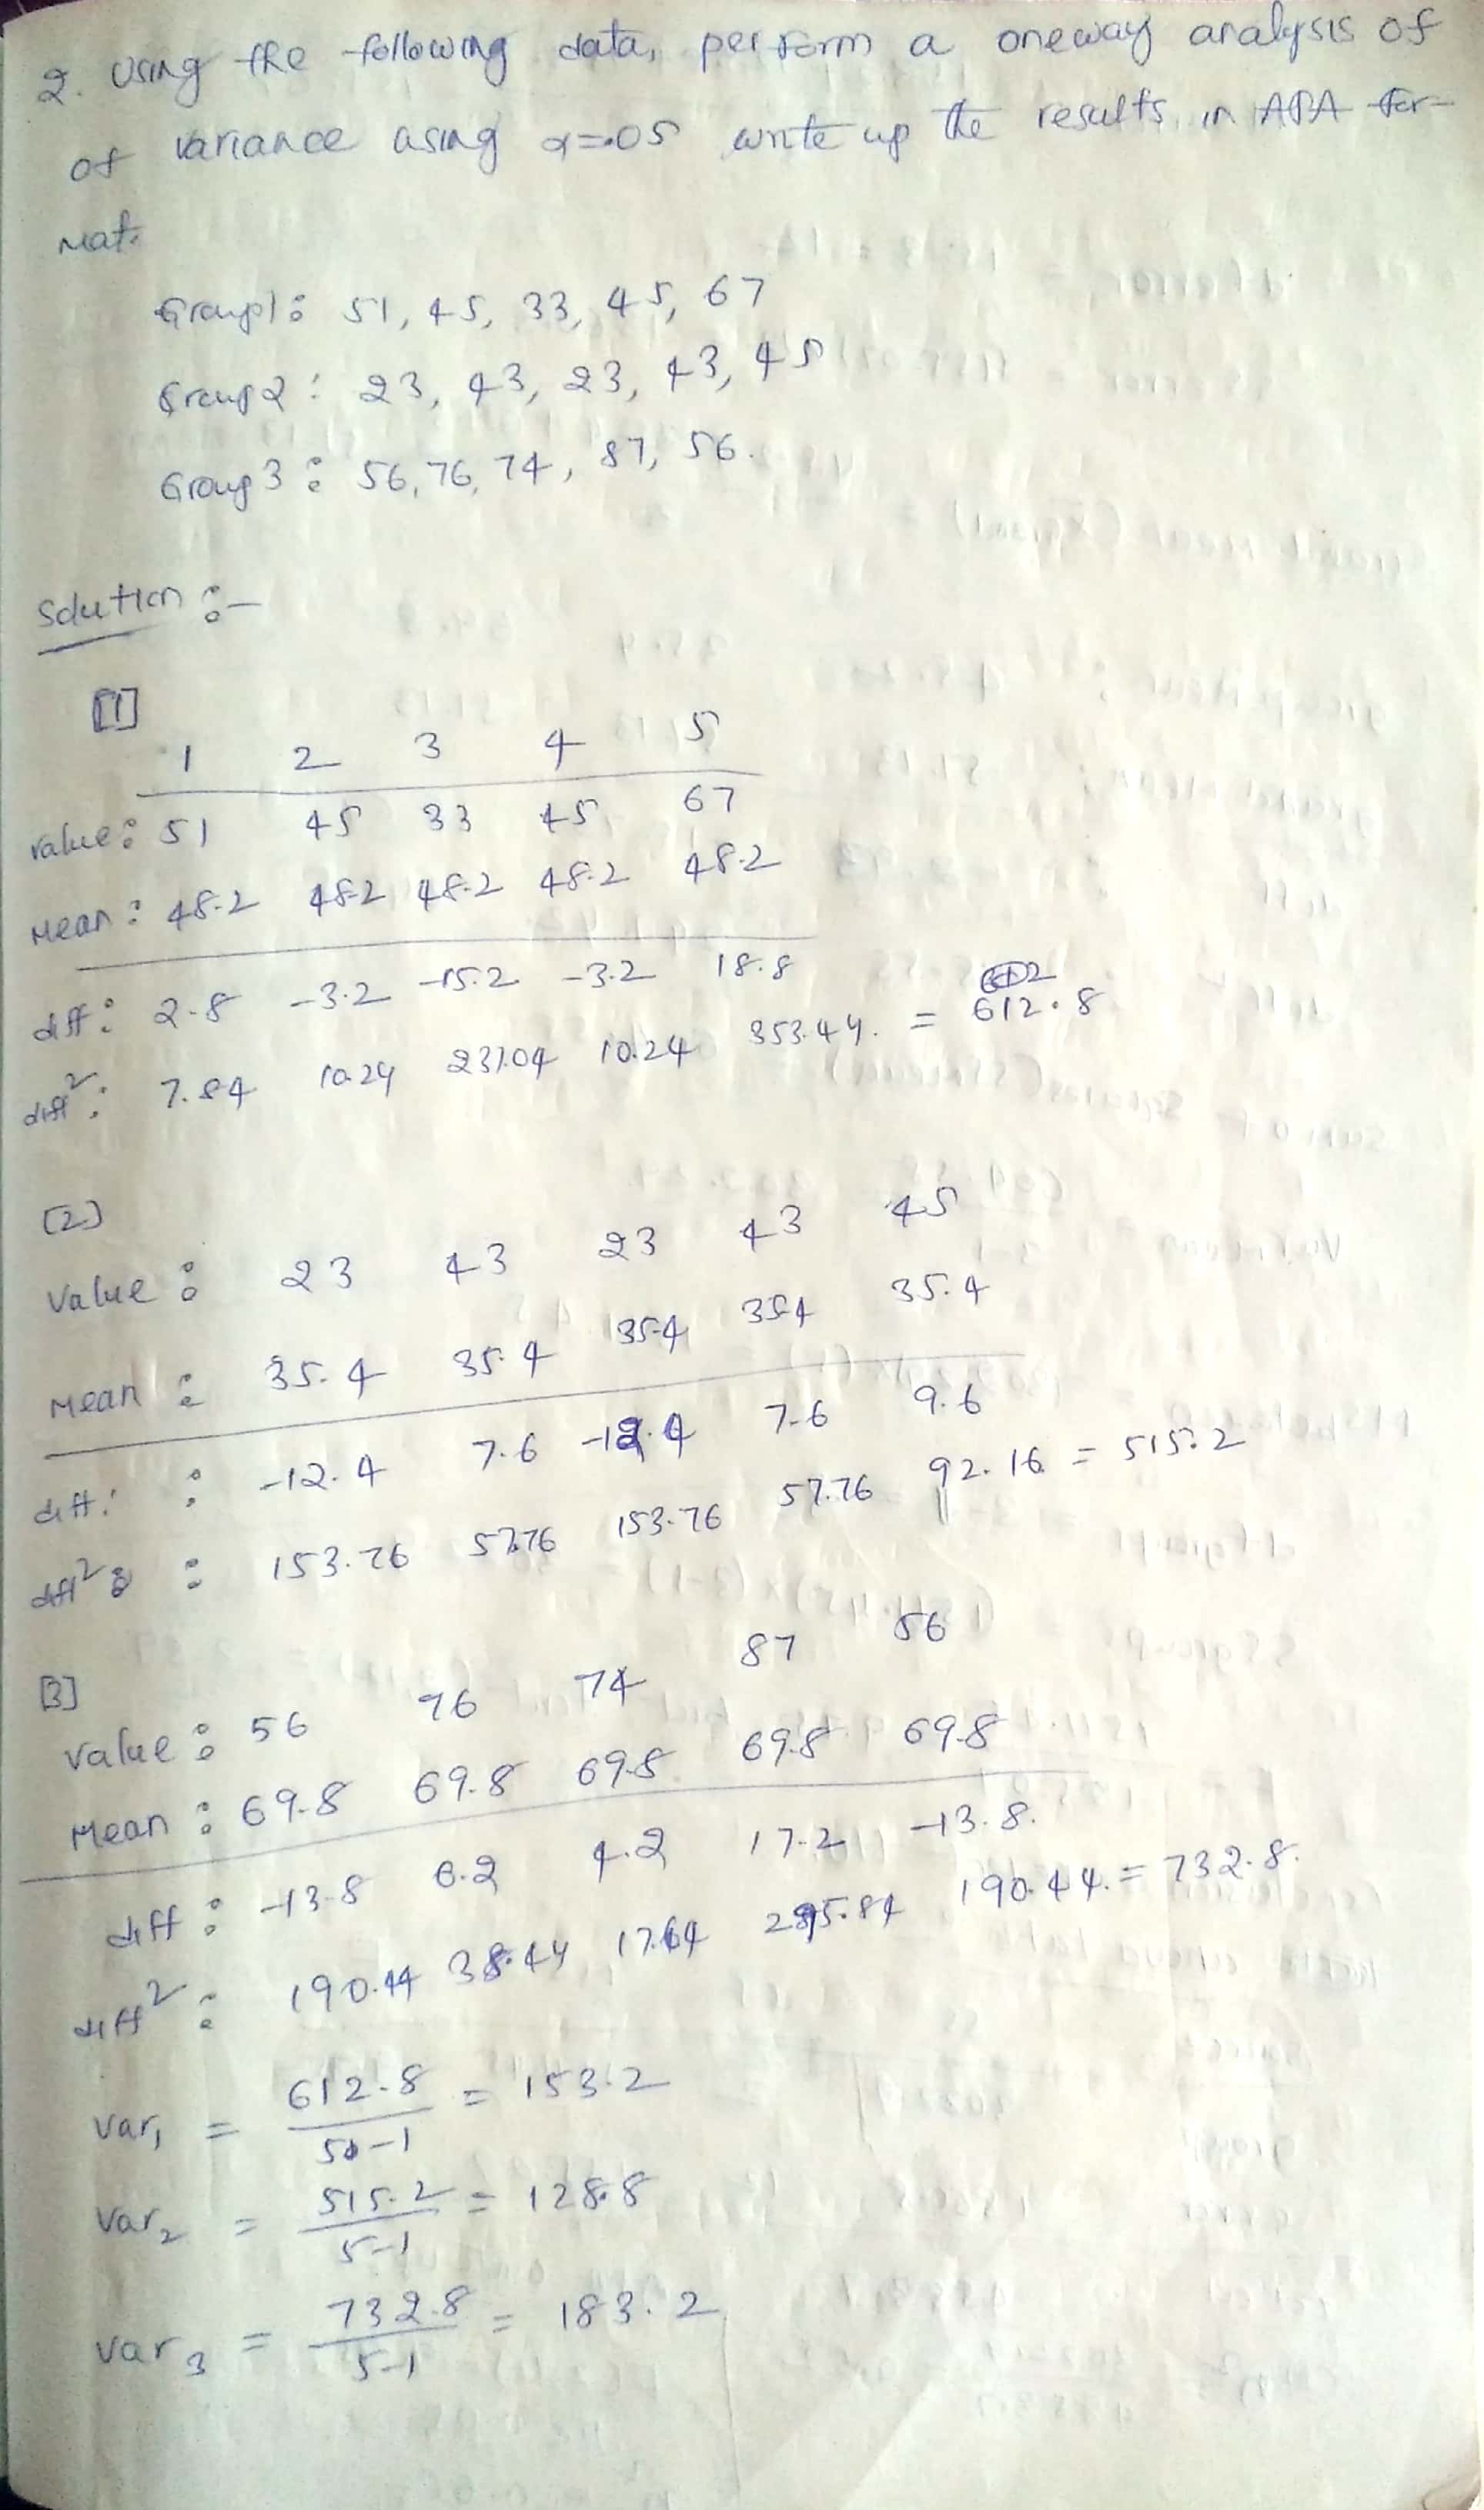 2. Using the following data, perform a oneway analysis of
of variance using α=.05 write up the results in APA For-
mat.
Group1: 51, 45, 33, 45, 67
Group2: 23, 43, 23, 43, 45
Group3: 56, 76, 74, 87, 56.
Solution :-
[1]
1 2 3 4 5
value: 51 45 33 45 67
Mean: 48.2 48.2 48.2 48.2 48.2
diff: 2.8 -3.2 -15.2 -3.2 18.8
diff²: 7.84 10.24 231.04 10.24 353.44. = 612.8
[2]
Value: 23 43 23 43 45
Mean: 35.4 35.4 35.4 35.4 35.4
diff: : -12.4 7.6 -12.4 7.6 9.6
diff² : 153.76 57.76 153.76 57.76 92.16 = 515.2
[3]
value: 56 76 74 87 56
Mean: 69.8 69.8 69.8 69.8 69.8
diff: -13.8 6.2 4.2 17.2 -13.8.
diff²: 190.44 38.44 17.64 295.84 190.44. = 732.8.
var₁ = 612.8 / 5-1 = 153.2
Var₂ = 515.2 / 5-1 = 128.8
Var₃ = 732.8 / 5-1 = 183.2